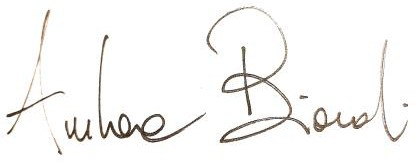 Andrea Biondi